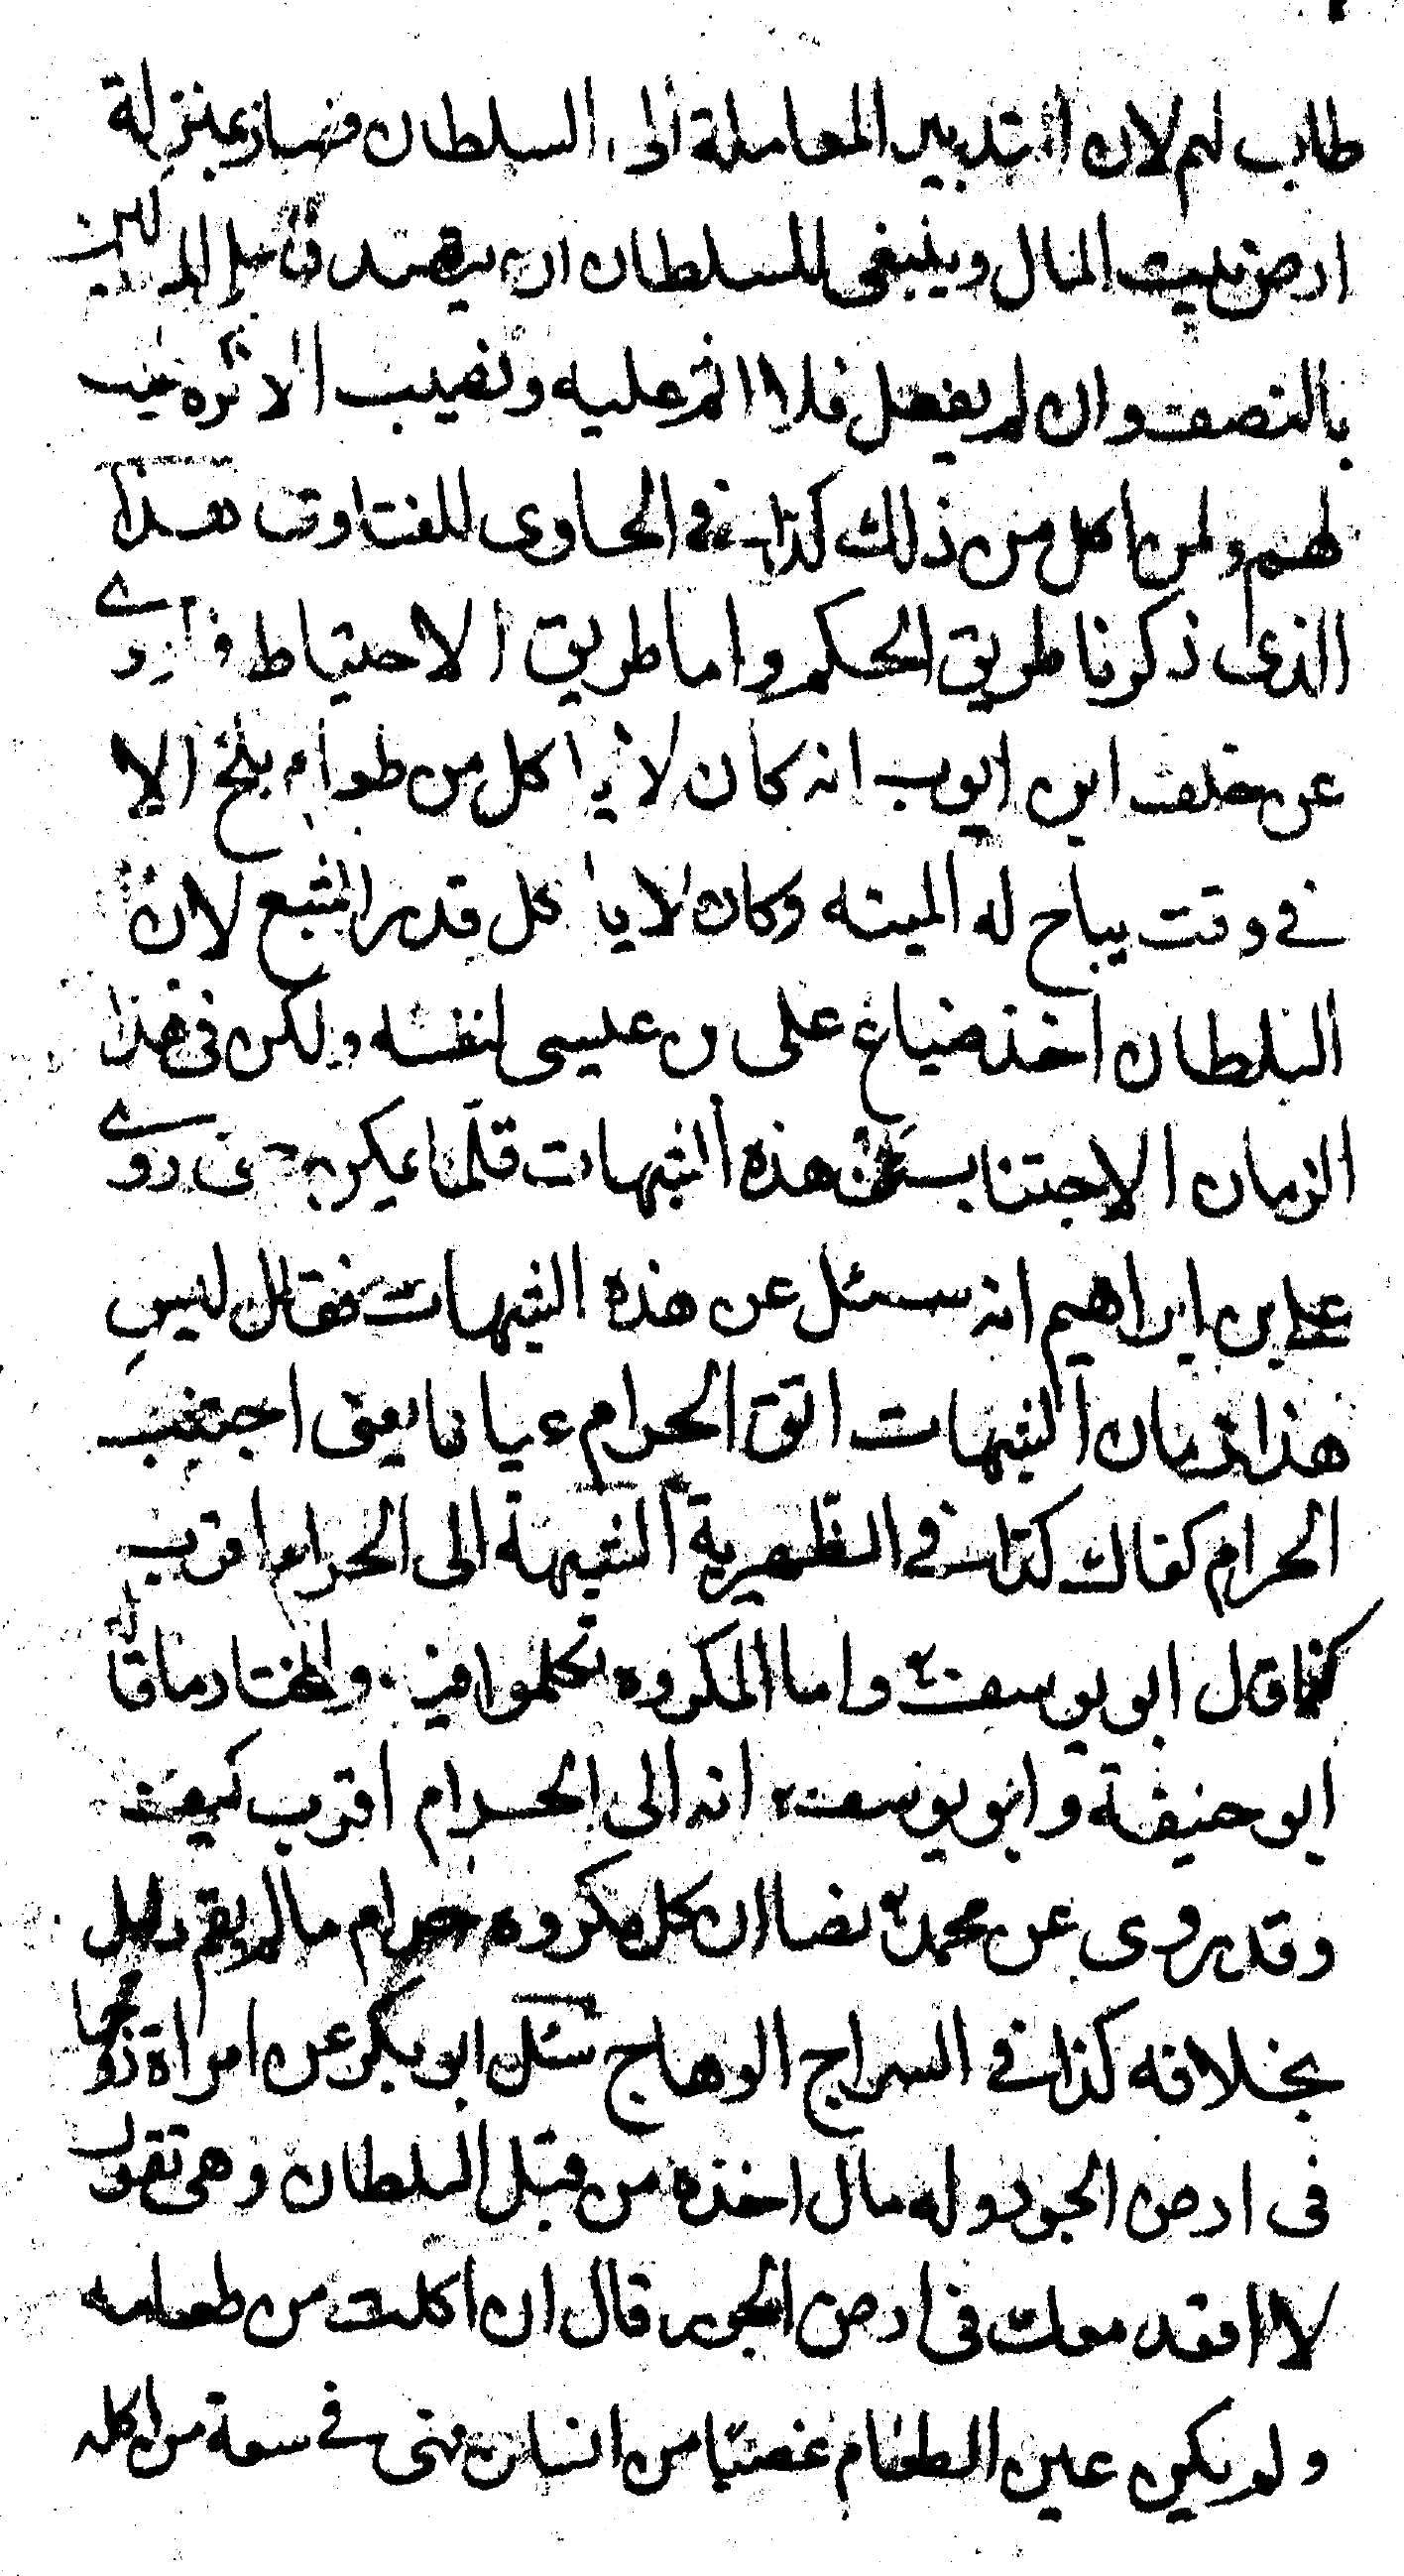 طاب لهم لان تدبير المعاملة الى السلطان فصار بمنزلة
ارض بيت المال وينبغى للسلطان ان يتصدق على المساكين
بالنصف وان لم يفعل فلا اثم عليه ونصيب الاكرة يطيب
لهم ولمن اكل من ذلك كذا في الحاوى للفتاوى هذا
الذى ذكرنا طريق الحكم واما طريق الاحتياط فما روى
عن خلف ابن ايوب انه كان لا يأكل من طعام بلخ الا
في وقت يباح له الميته وكان لا يأكل قدر الشبع لان
السلطان اخذ ضياع على بن عيسى لنفسه ولكن فى هذا
الزمان الاجتناب عن هذه الشبهات قلما يمكن حتى روى
على بن ابراهيم انه سئل عن هذه الشبهات فقال ليس
هذا زمان الشبهات اتق الحرام عيانا يعنى اجتنب
الحرام كفاك كذا في الظهيرية الشبهة الى الحرام اقرب
كذا قال ابو يوسف واما المكروه تكلموا فيه والمختار ما قاله
ابو حنيفة وابو يوسف انه الى الحرام اقرب كيف
وقد روى عن محمد نصا ان كل مكروه حرام ما لم يقم دليل
بخلافه كذا في السراج الوهاج سئل ابو بكر عن امراة زوجها
فى ارض الجور وله مال اخذه من قبل السلطان وهى تقول
لا اقعد معك فى ارض الجور قال ان اكلت من طعامه
ولم يكن عين الطعام غصبا من انسان فهى في سعة من اكله